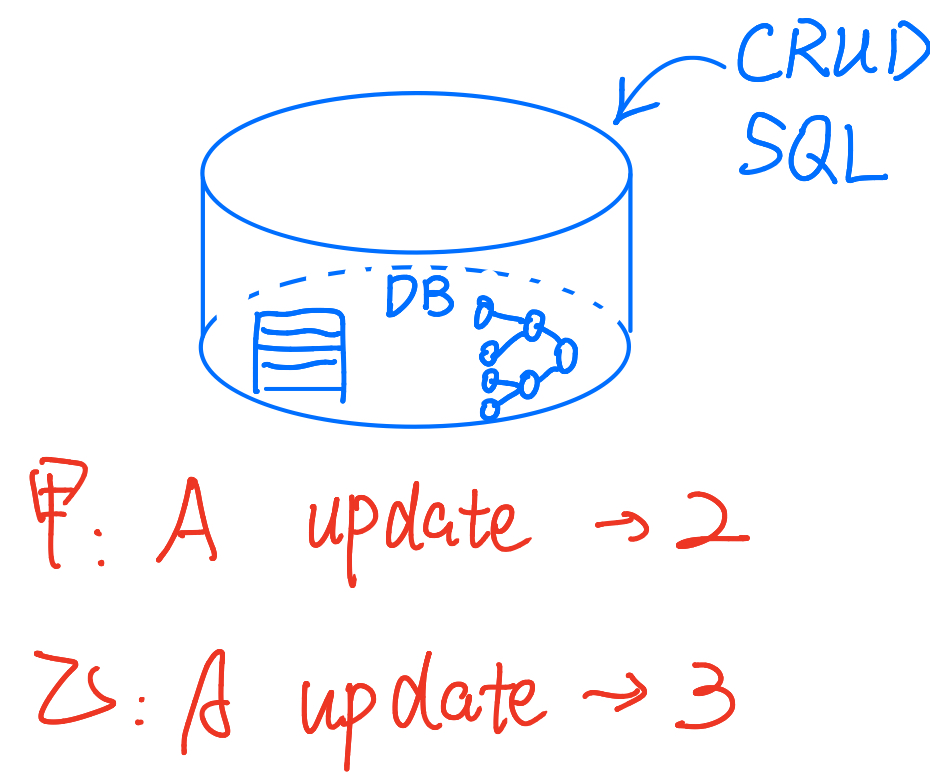 CRUD
SQL
DB
甲: A update → 2
乙: A update → 3